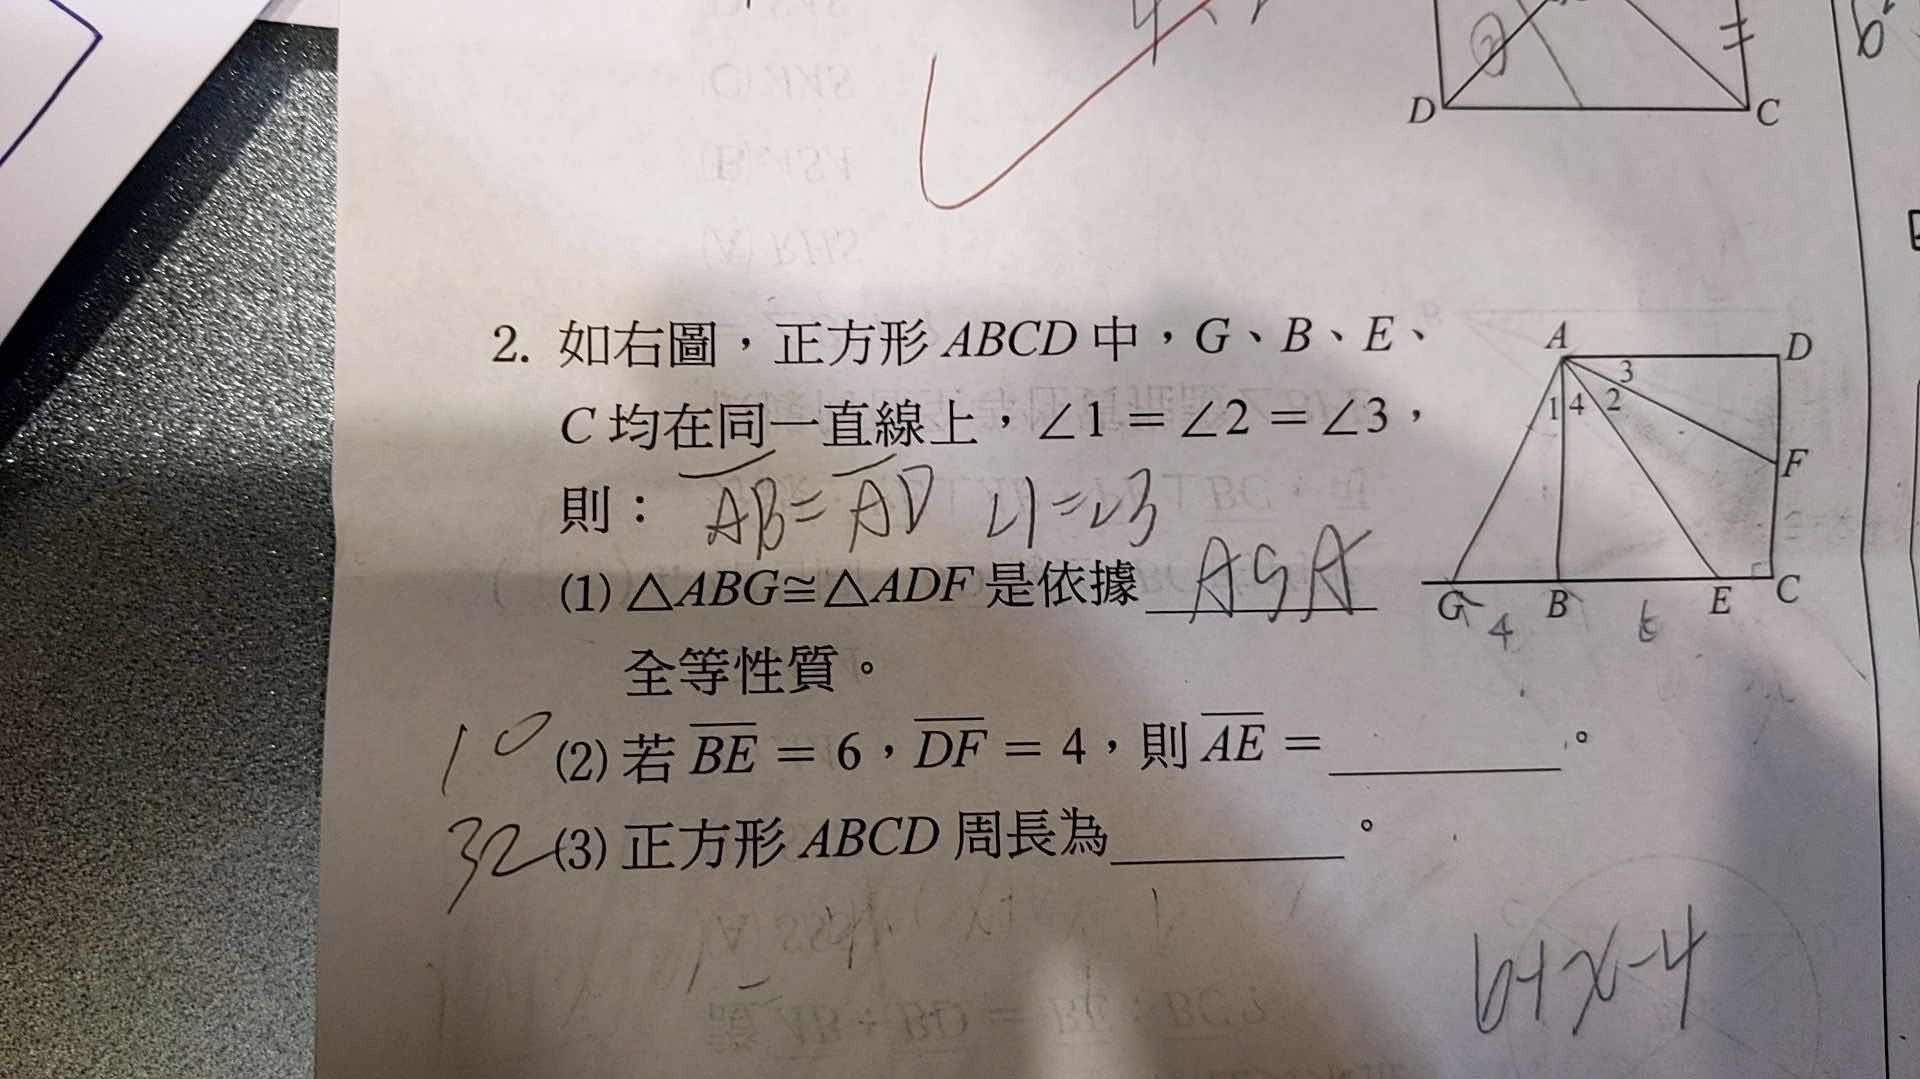 D
C
2. 如右圖，正方形 ABCD 中，G、B、E、
C 均在同一直線上，∠1 = ∠2 = ∠3，
則： AB = AD ∠1 = ∠3
(1) △ABG≅△ADF 是依據 ASA
全等性質。
10 (2) 若 BE = 6，DF = 4，則 AE = ______。
32 (3) 正方形 ABCD 周長為______。
A
D
3
1 4 2
F
G B E C
4
6+x-4